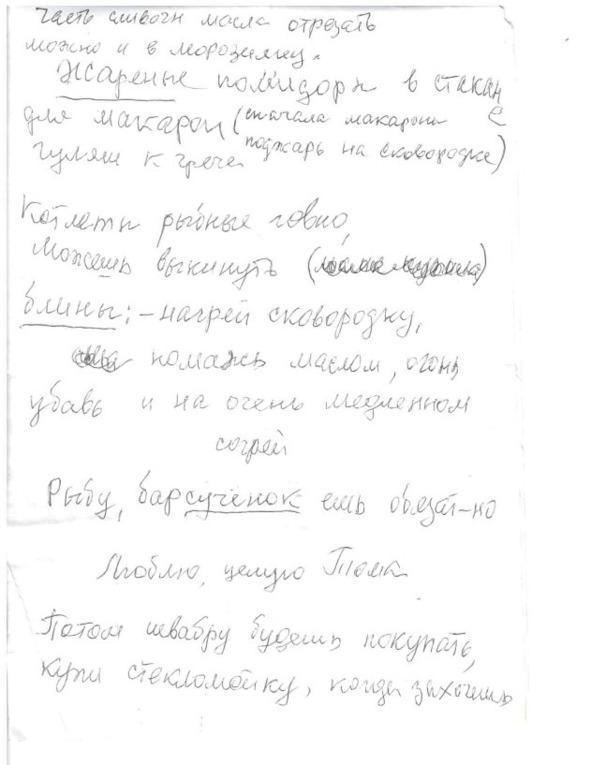 Часть сливочн масла отрезать
можно и в морозилку.
Жареные помидоры в стакане
для макарон (сначала макароны
поджарь на сковородке)
гуляш к грече
Котлеты рыбные говно,
можешь выкинуть
блины: - нагрей сковородку,
помажь маслом, огонь
убавь и на очень медленном
согрей
Рыбу, барсученок ешь обязат-но
Люблю, целую Тома
Потом швабру будешь покупать,
купи стекломойку, когда захочешь